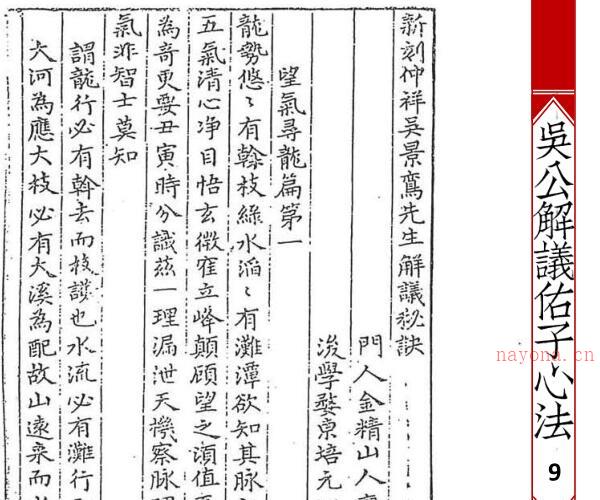 新刻仲祥吳景鸞先生解議秘訣
門人金精山人
後學婺東培元
望氣尋龍篇第一
龍勢悠〻有榦枝絲水滔〻有灘潭欲知其脉
五氣清心净目悟玄微窪立峰顛顧望之湏值
為奇更要丑寅時分識兹一理漏泄天機察脉
氣非智士莫知
謂龍行必有榦去而枝護也水流必有灘行
大河為應大枝必有大溪為配故山遠來而
吳公解議佑子心法
nayona.cn
9